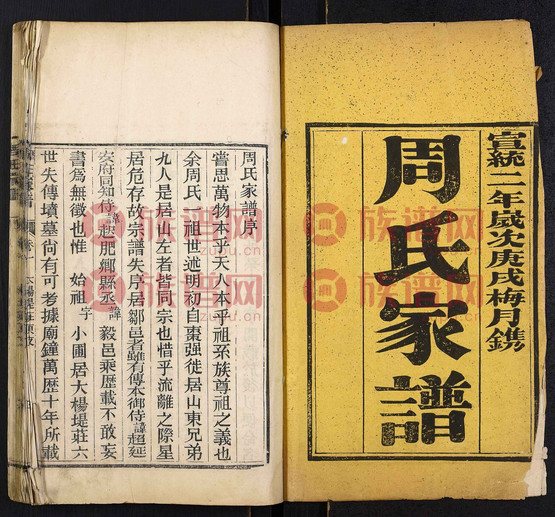 宣統二年歲次庚戌梅月鐫
周氏家譜
周氏家譜序
嘗思萬物本乎天人本乎祖系族尊祖之義也
余周氏 祖世述明初自棗强徙居山東兄弟
九人是居山左者皆同宗也惜乎流離之際星
居危存故宗譜失序居鄒邑者雖有傳本御侍諱超延
安府同知待諱超肥鄉縣丞諱毅邑乘歷載不敢妄
書為無徵也惟 始祖 字小圃居大楊堤莊六
世失傳墳墓尚有可考據廟鐘萬歷十年所載
族谱网
zupu.cn
族谱网
zupu.cn
族谱网
zupu.cn
族谱网
zupu.cn